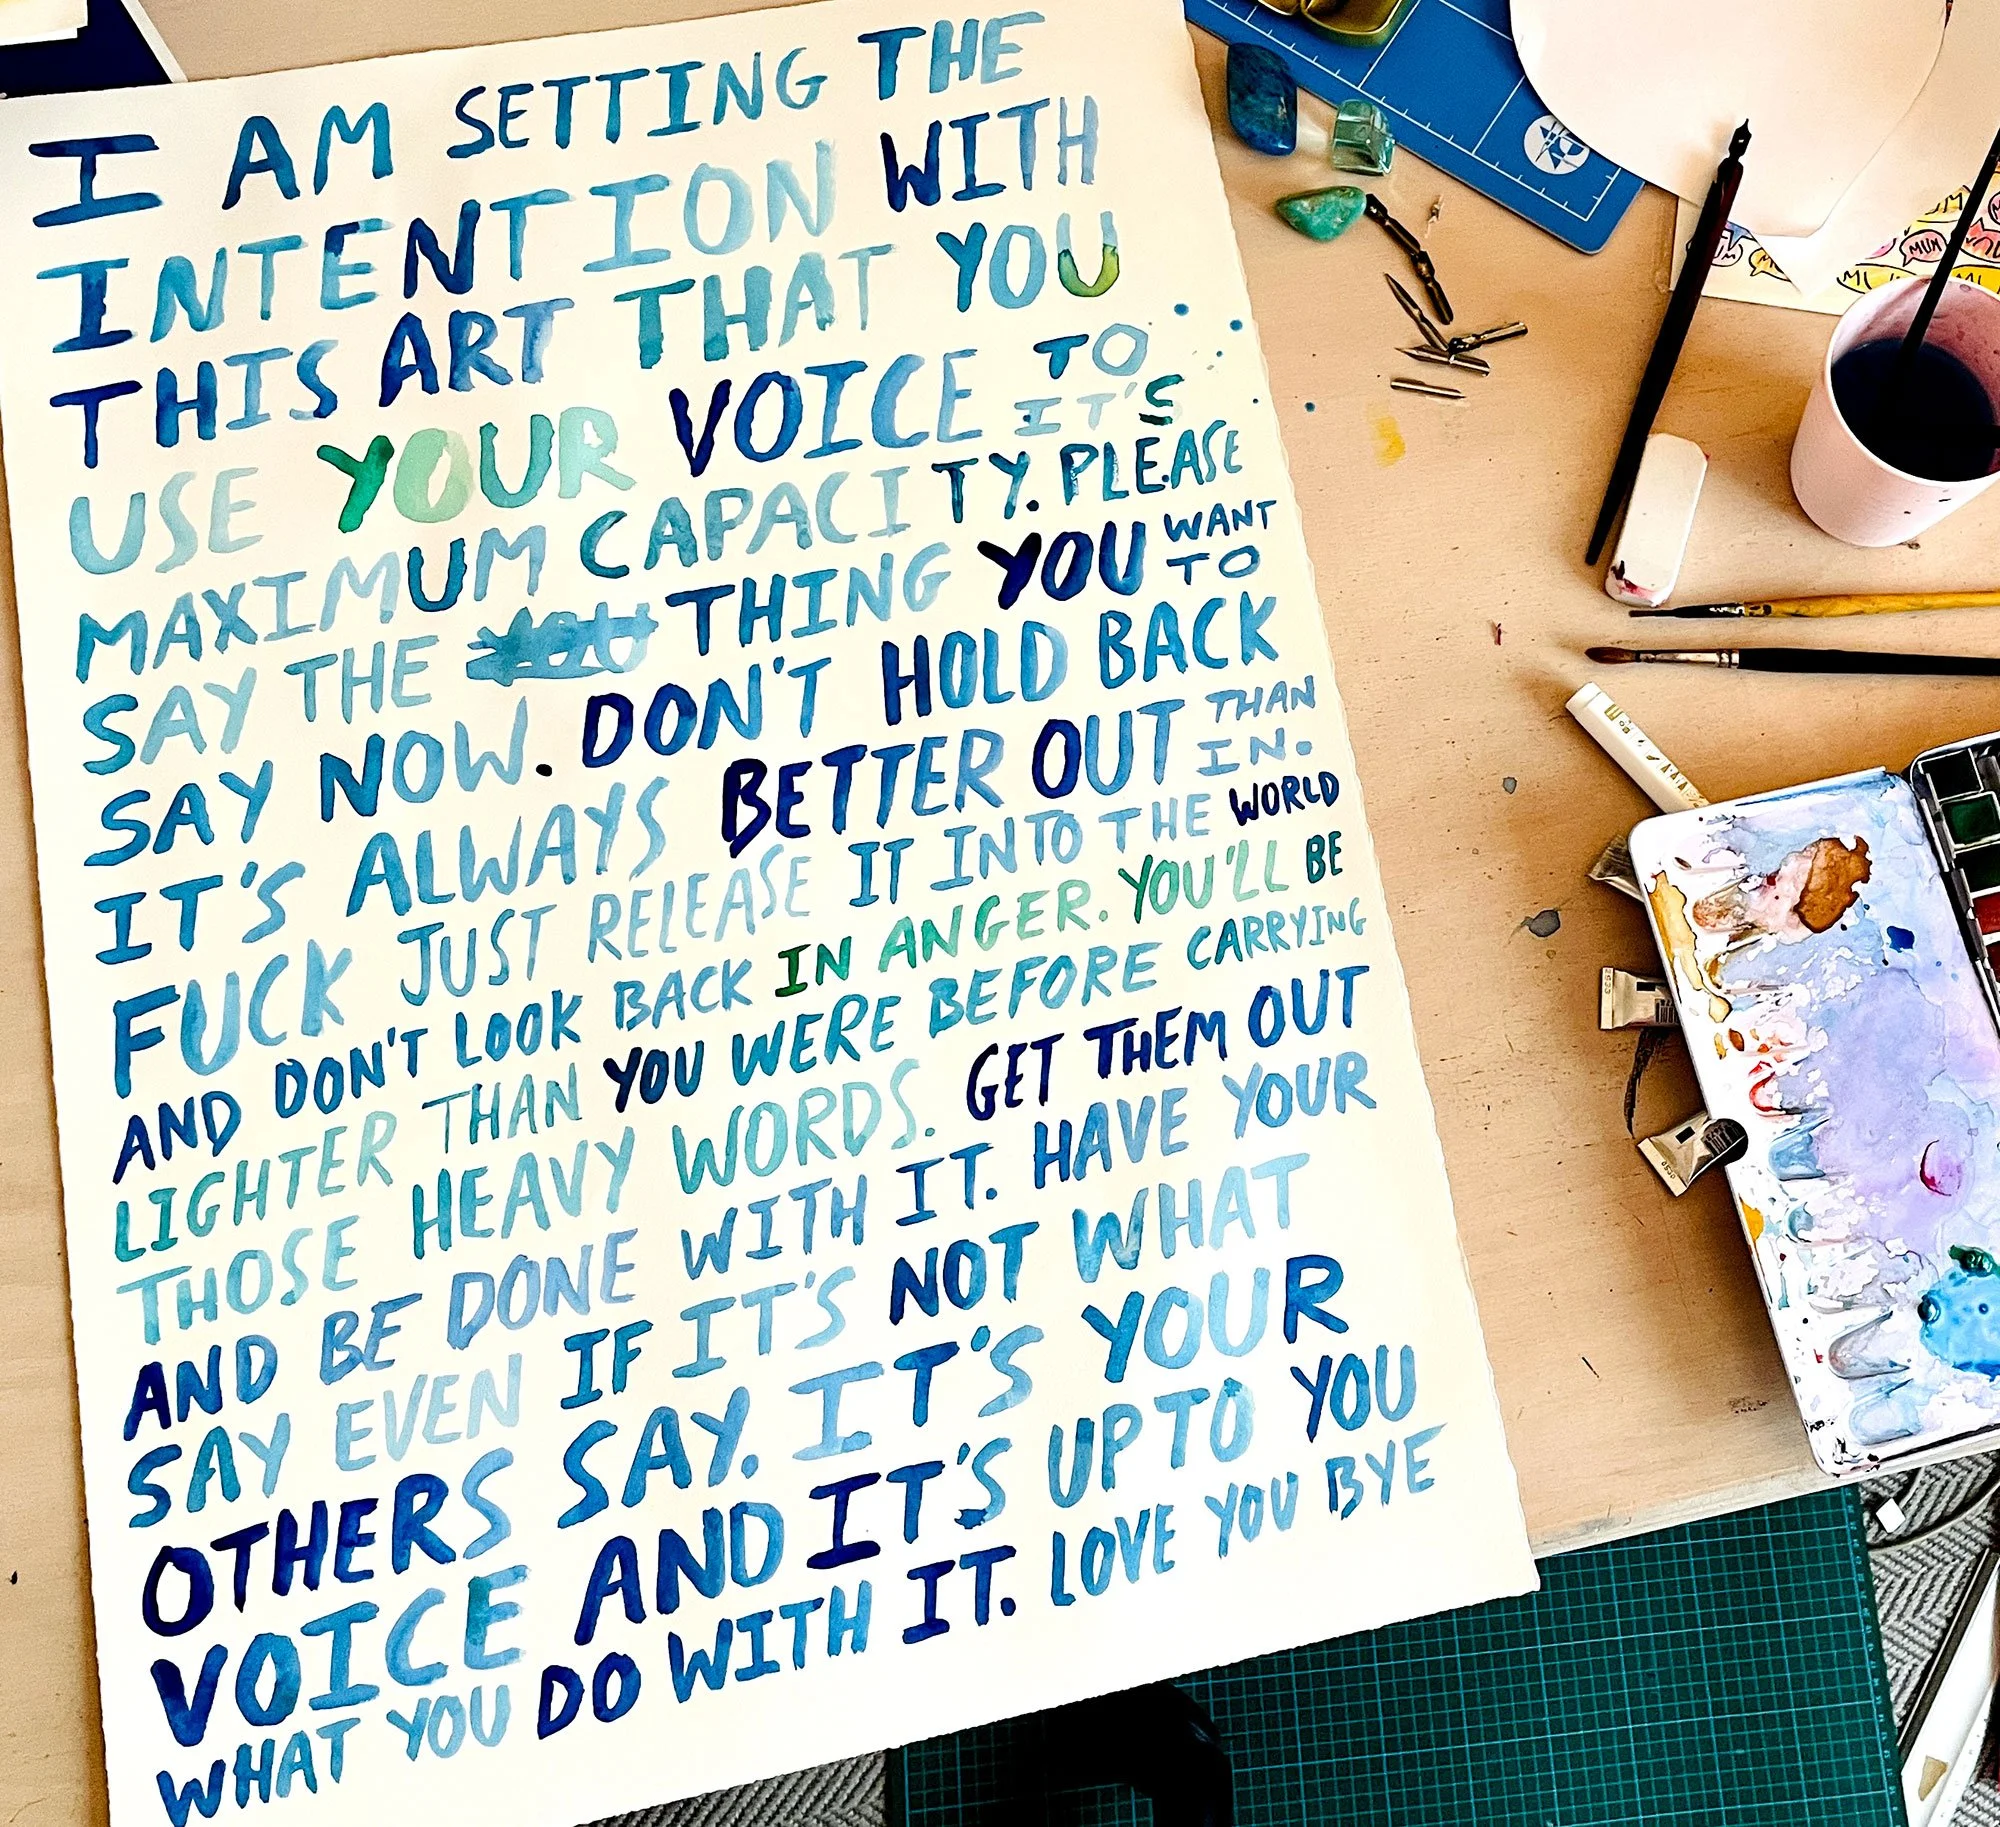 I AM SETTING THE
INTENTION WITH
THIS ART THAT YOU
USE YOUR VOICE TO IT'S
MAXIMUM CAPACITY. PLEASE
SAY THE YOU THING YOU WANT TO
SAY NOW. DON'T HOLD BACK
IT'S ALWAYS BETTER OUT THAN IN.
FUCK JUST RELEASE IT INTO THE WORLD
AND DON'T LOOK BACK IN ANGER. YOU'LL BE
LIGHTER THAN YOU WERE BEFORE CARRYING
THOSE HEAVY WORDS. GET THEM OUT
AND BE DONE WITH IT. HAVE YOUR
SAY EVEN IF IT'S NOT WHAT
OTHERS SAY. IT'S YOUR
VOICE AND IT'S UP TO YOU
WHAT YOU DO WITH IT. LOVE YOU BYE
MUM